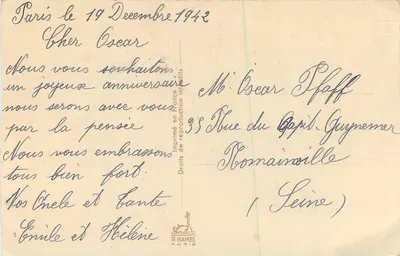 Paris le 19 Decembre 1942
Cher Oscar
Nous vous souhaitons
un joyeux anniversaire
nous serons avec vous
par la pensée
Nous vous embrassons
tous bien fort.
Vos Oncle et Tante
Emile et Hélène
Imprimé en France
Droits de reproduction réservés
PARIS
Mr Oscar Pfaff
35 Rue du Capit. Guynemer
Romainville
(Seine)